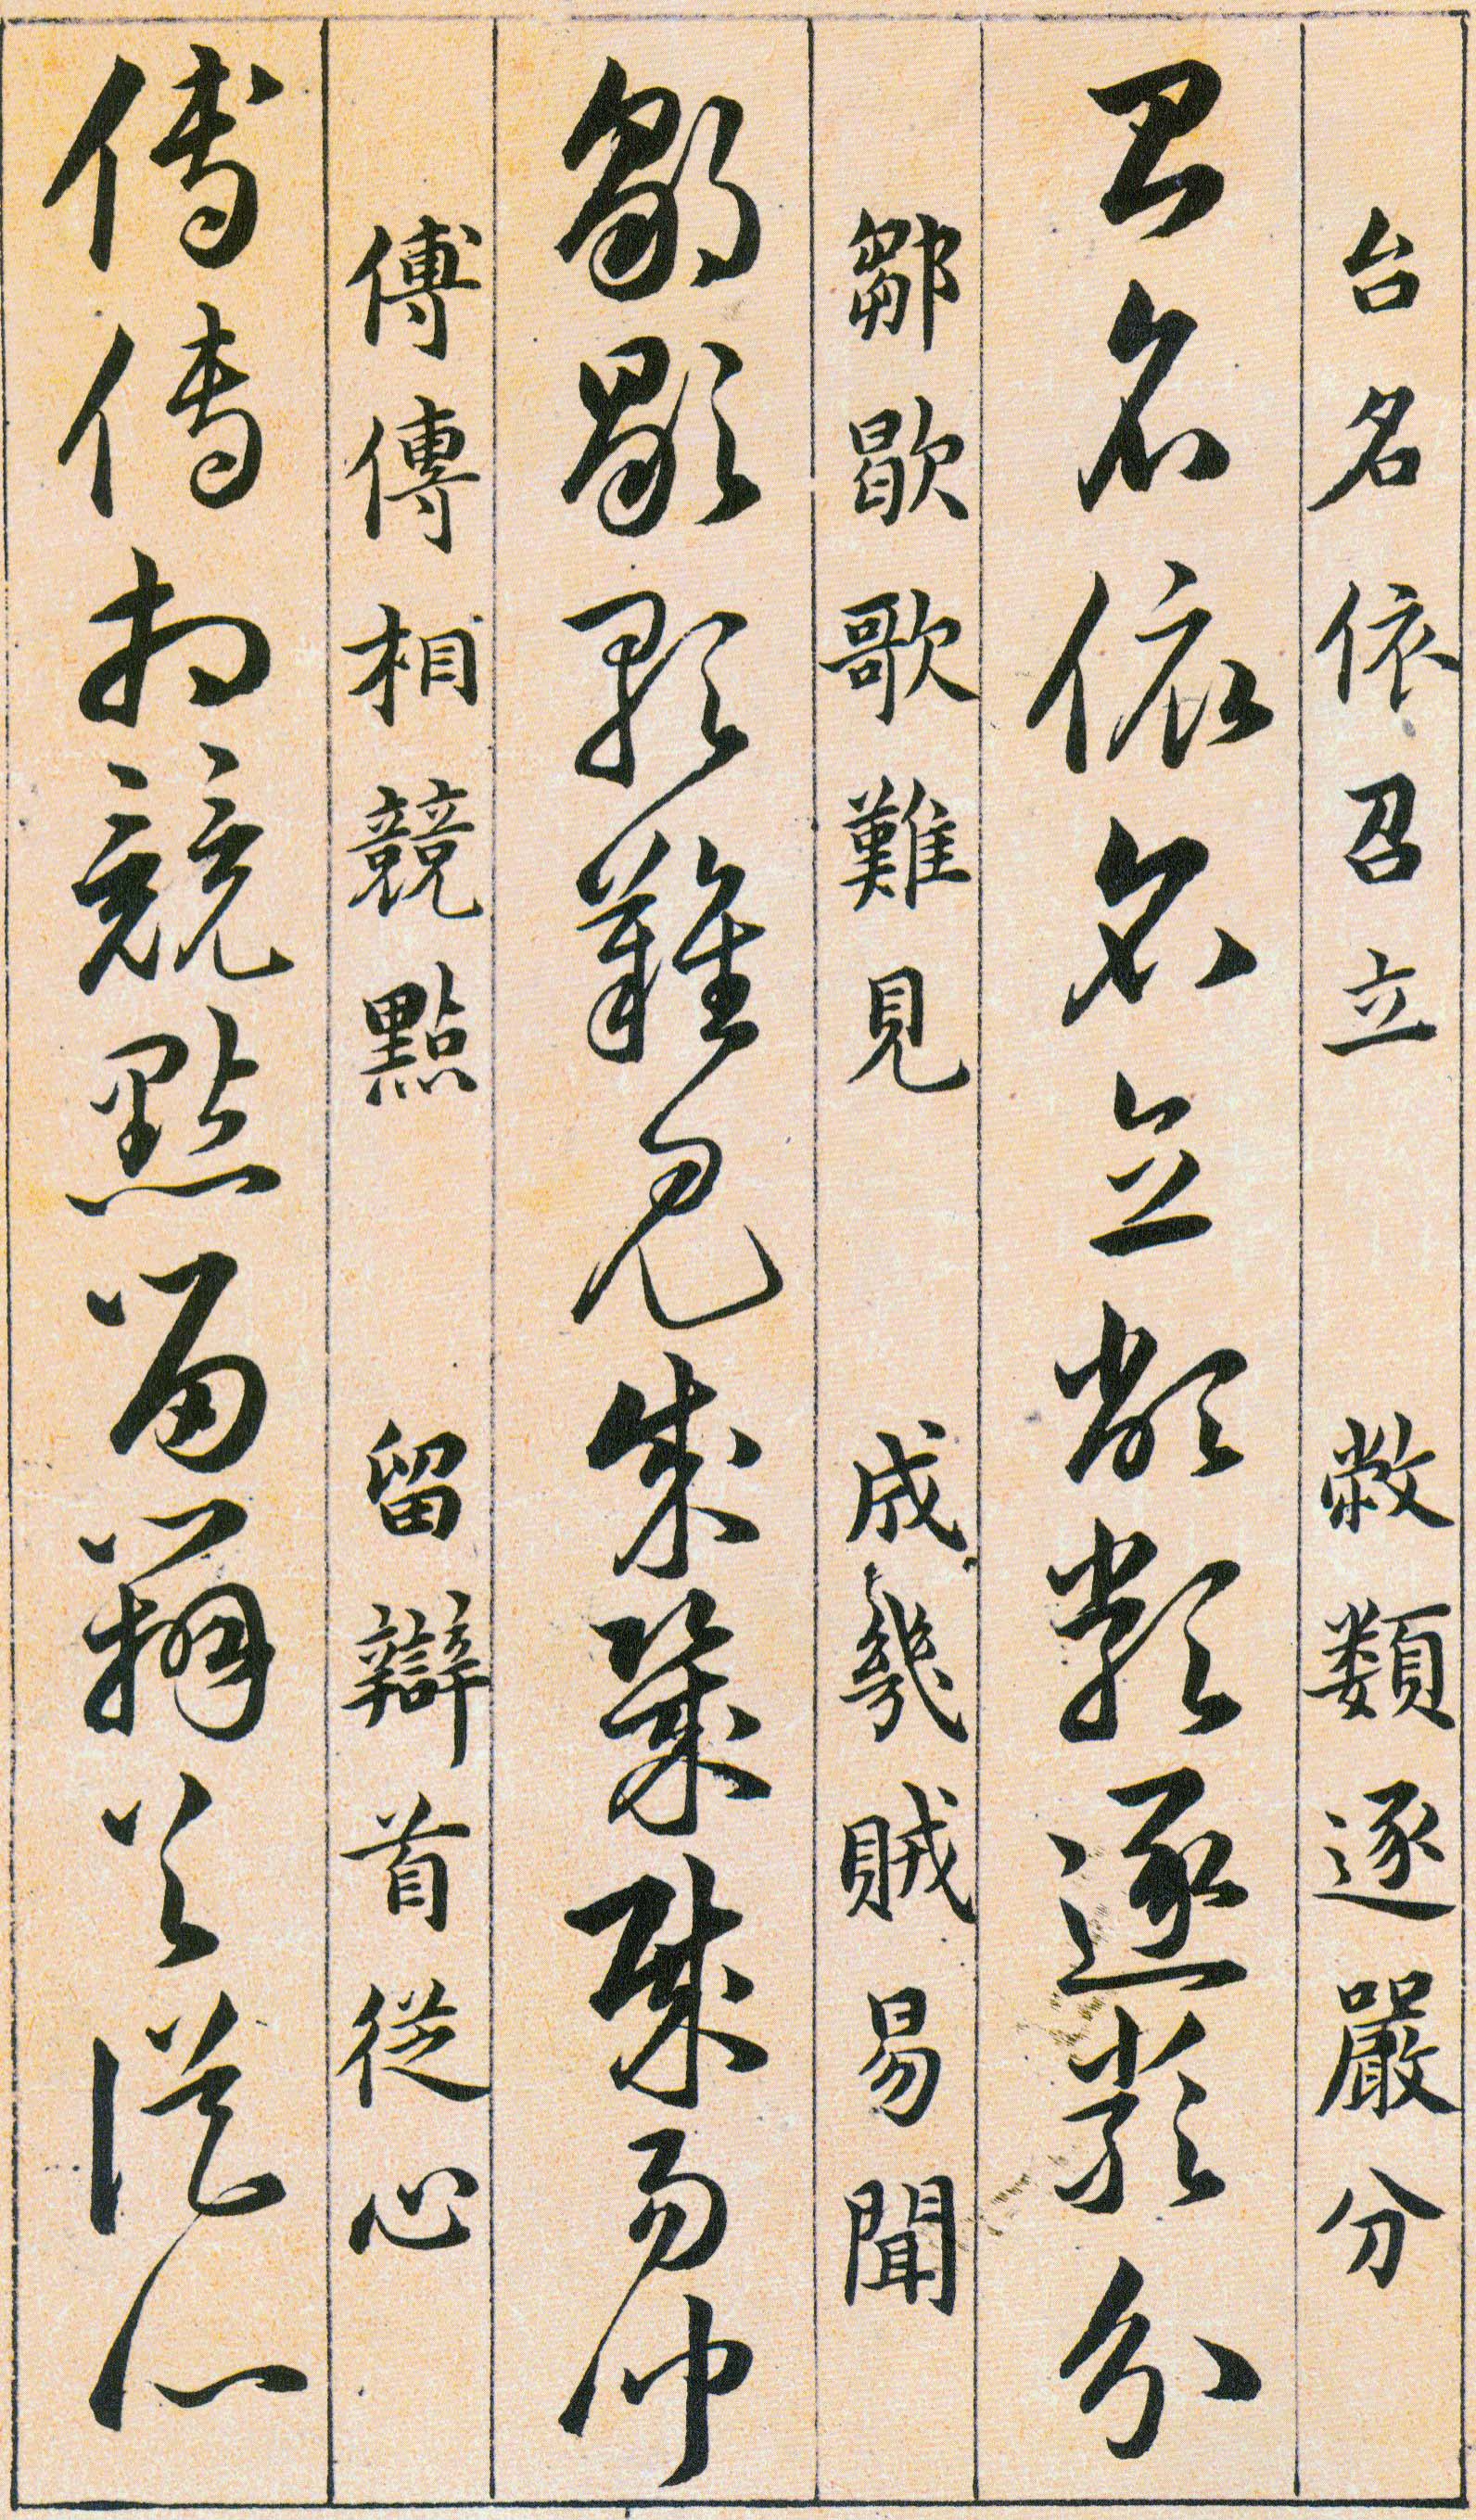 台名依召立　敝類逐嚴分
台名依召立敝類逐嚴分
鄒歇歌難見　成幾賊易聞
鄒歇歌難見成幾賊易聞
傅傳相競點　留辯首從心
傅傳相競點留辯首從心